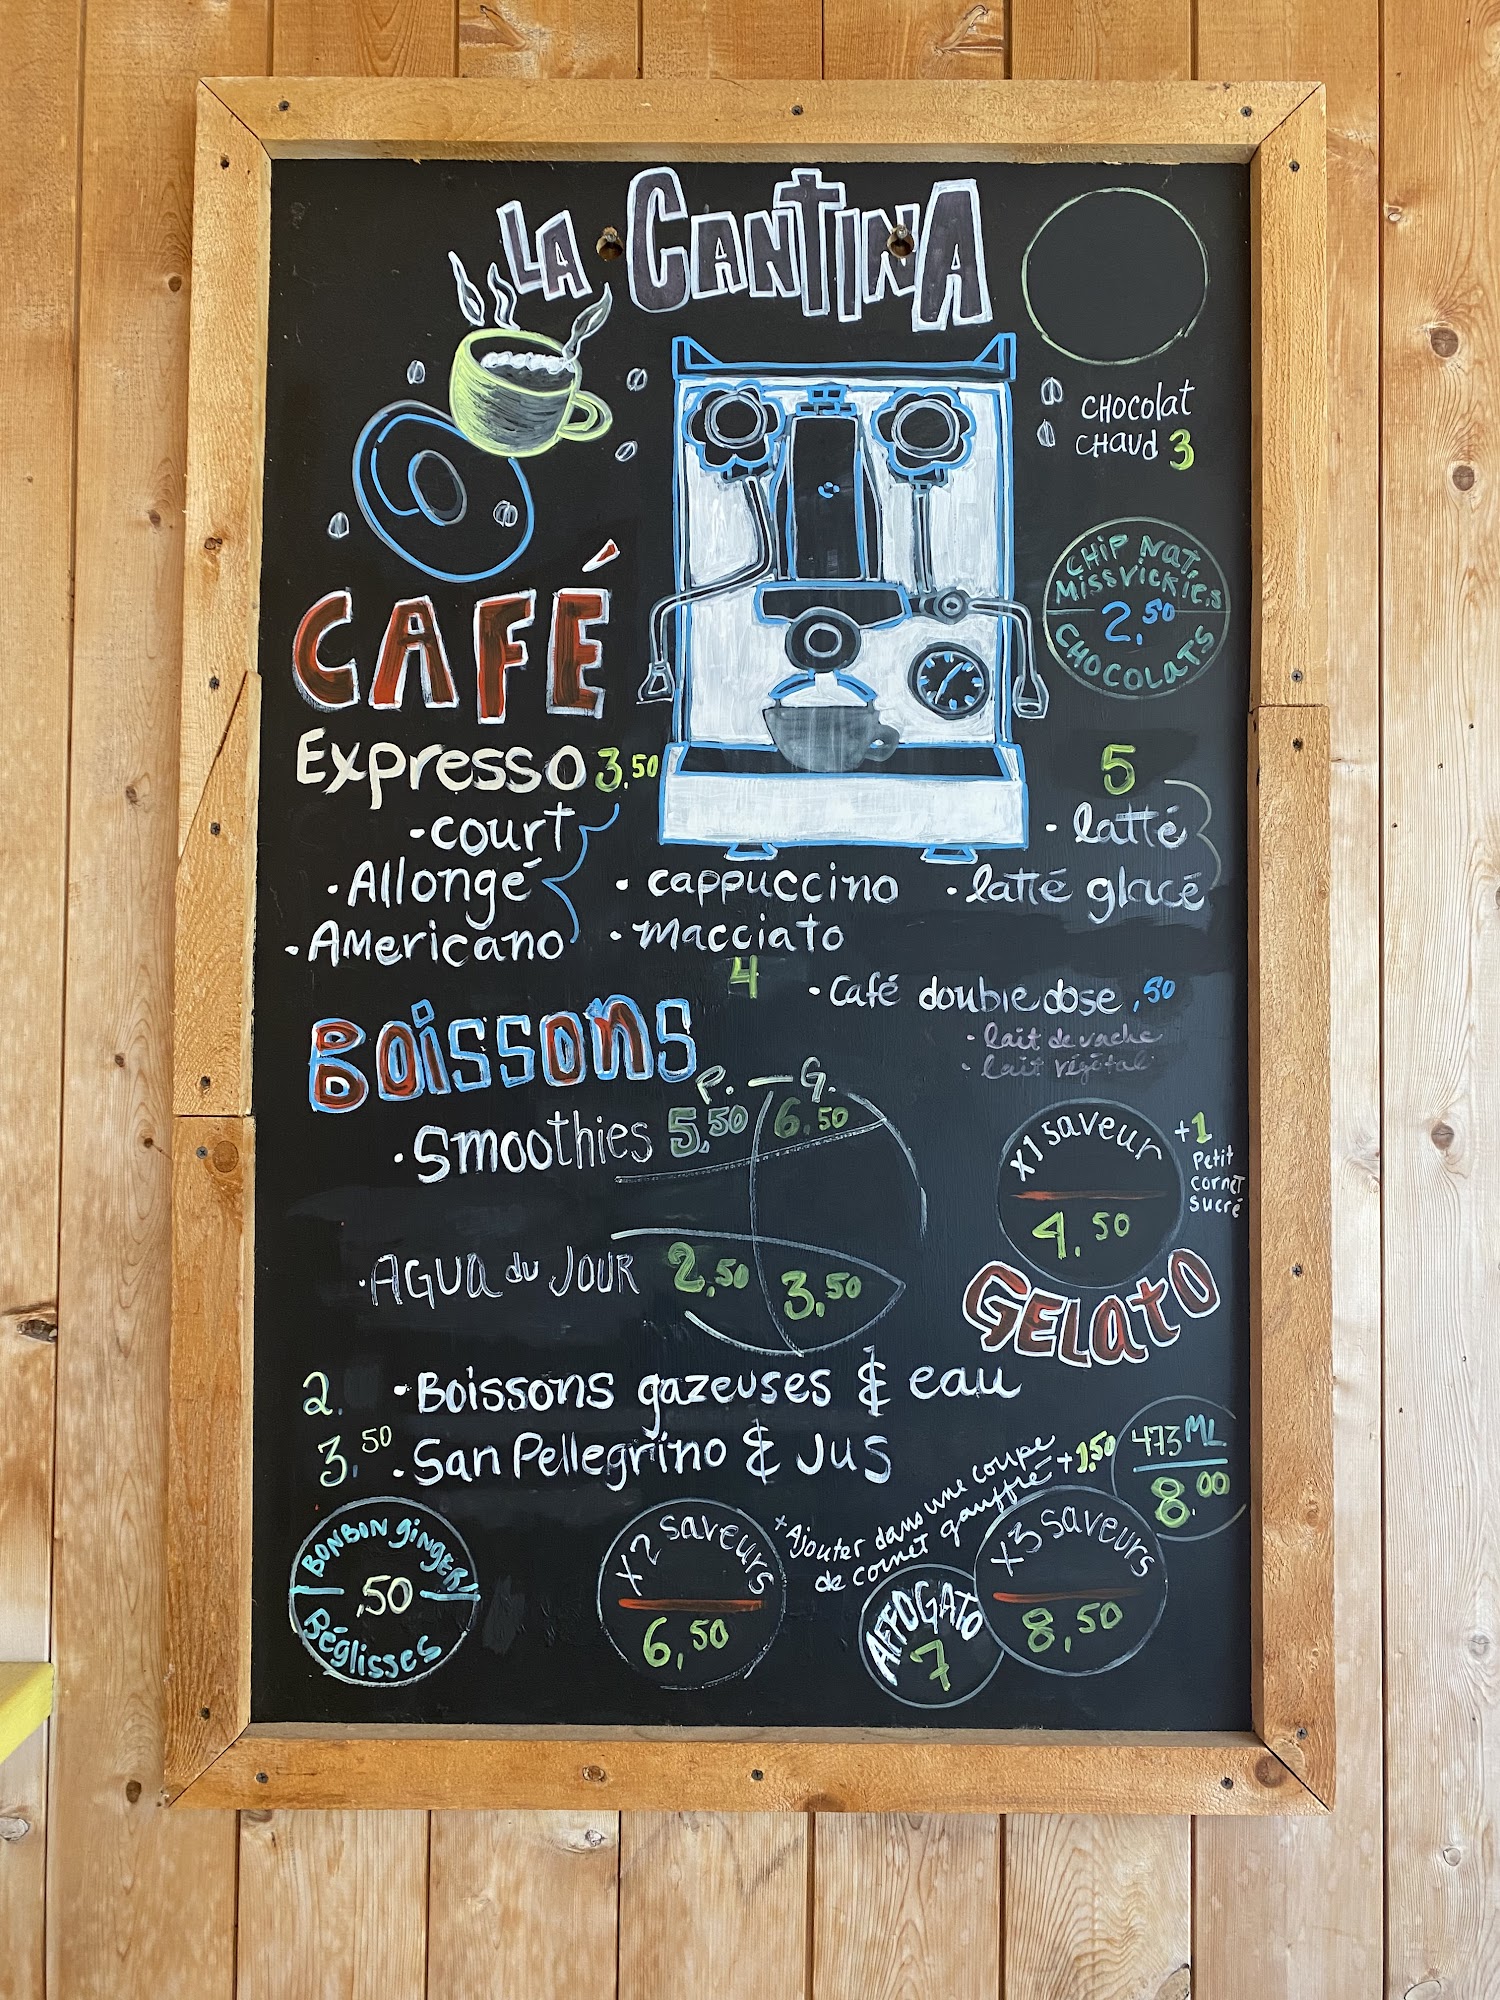 LA CANTINA
CHOCOLAT
CHAUD 3
CHIP NAT.
MISSVICKIE,S
2,50
CHOCOLATS
CAFÉ
Expresso 3,50
• court
• Allongé
• Americano
• cappuccino
• macciato
4
5
• latté
• latté glacé
• Café double dose ,50
• lait de vache
• lait végétal
BOISSONS
P. — G.
• Smoothies 5,50 6,50
• AGUA du JOUR 2,50 3,50
2. • Boissons gazeuses & eau
3,50 • San Pellegrino & Jus
X1 saveur
4,50
+1
Petit
cornet
sucré
GELATO
473 ML
8.00
+ Ajouter dans une coupe
de cornet gauffré +1.50
X3 saveurs
8,50
AFFOGATO
7
X2 saveurs
6,50
BONBON GINGER/
,50
Réglisses